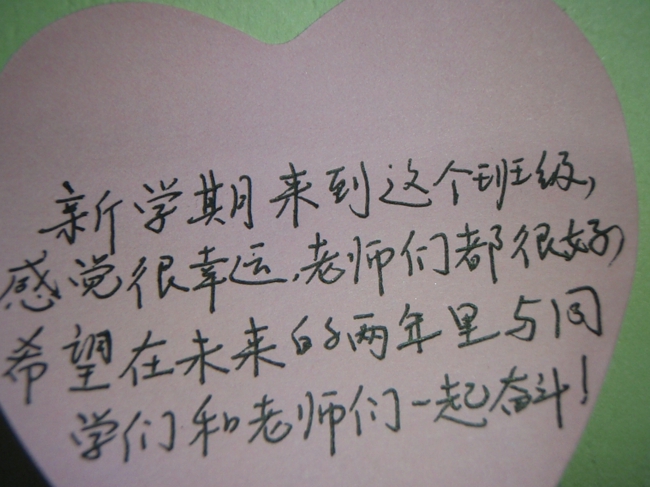 新学期来到这个班级,
感觉很幸运.老师们都很好,
希望在未来的两年里与同
学们和老师们一起奋斗!